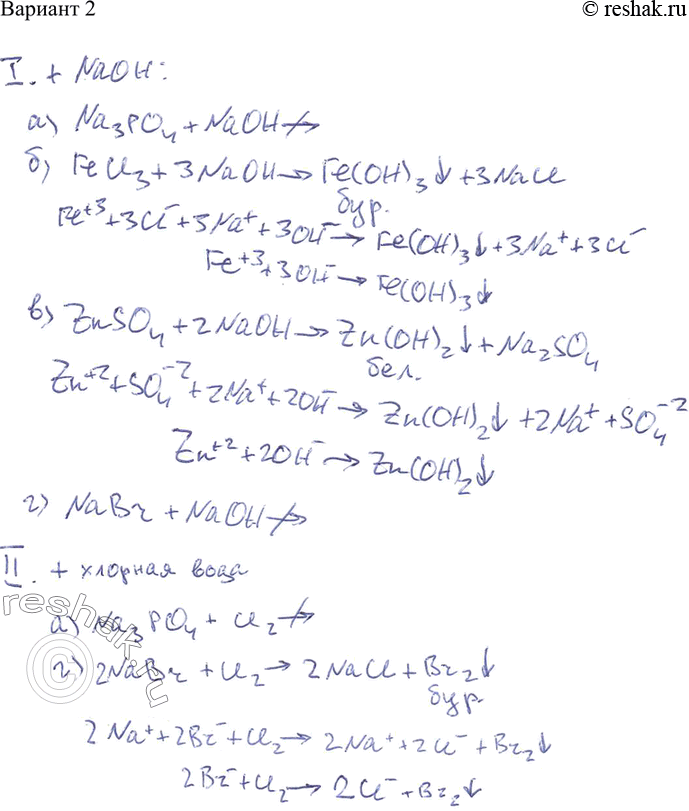 Вариант 2
© reshak.ru
I. + NaOH:
а) Na₃PO₄ + NaOH ↛
б) FeCl₃ + 3NaOH → Fe(OH)₃↓ + 3NaCl
бур.
Fe⁺³ + 3Cl⁻ + 3Na⁺ + 3OH⁻ → Fe(OH)₃↓ + 3Na⁺ + 3Cl⁻
Fe⁺³ + 3OH⁻ → Fe(OH)₃↓
в) ZnSO₄ + 2NaOH → Zn(OH)₂↓ + Na₂SO₄
бел.
Zn⁺² + SO₄⁻² + 2Na⁺ + 2OH⁻ → Zn(OH)₂↓ + 2Na⁺ + SO₄⁻²
Zn⁺² + 2OH⁻ → Zn(OH)₂↓
г) NaBr + NaOH ↛
II. + хлорная вода
а) Na₃PO₄ + Cl₂ ↛
г) 2NaBr + Cl₂ → 2NaCl + Br₂↓
бур.
2Na⁺ + 2Br⁻ + Cl₂ → 2Na⁺ + 2Cl⁻ + Br₂↓
2Br⁻ + Cl₂ → 2Cl⁻ + Br₂↓
reshak.ru